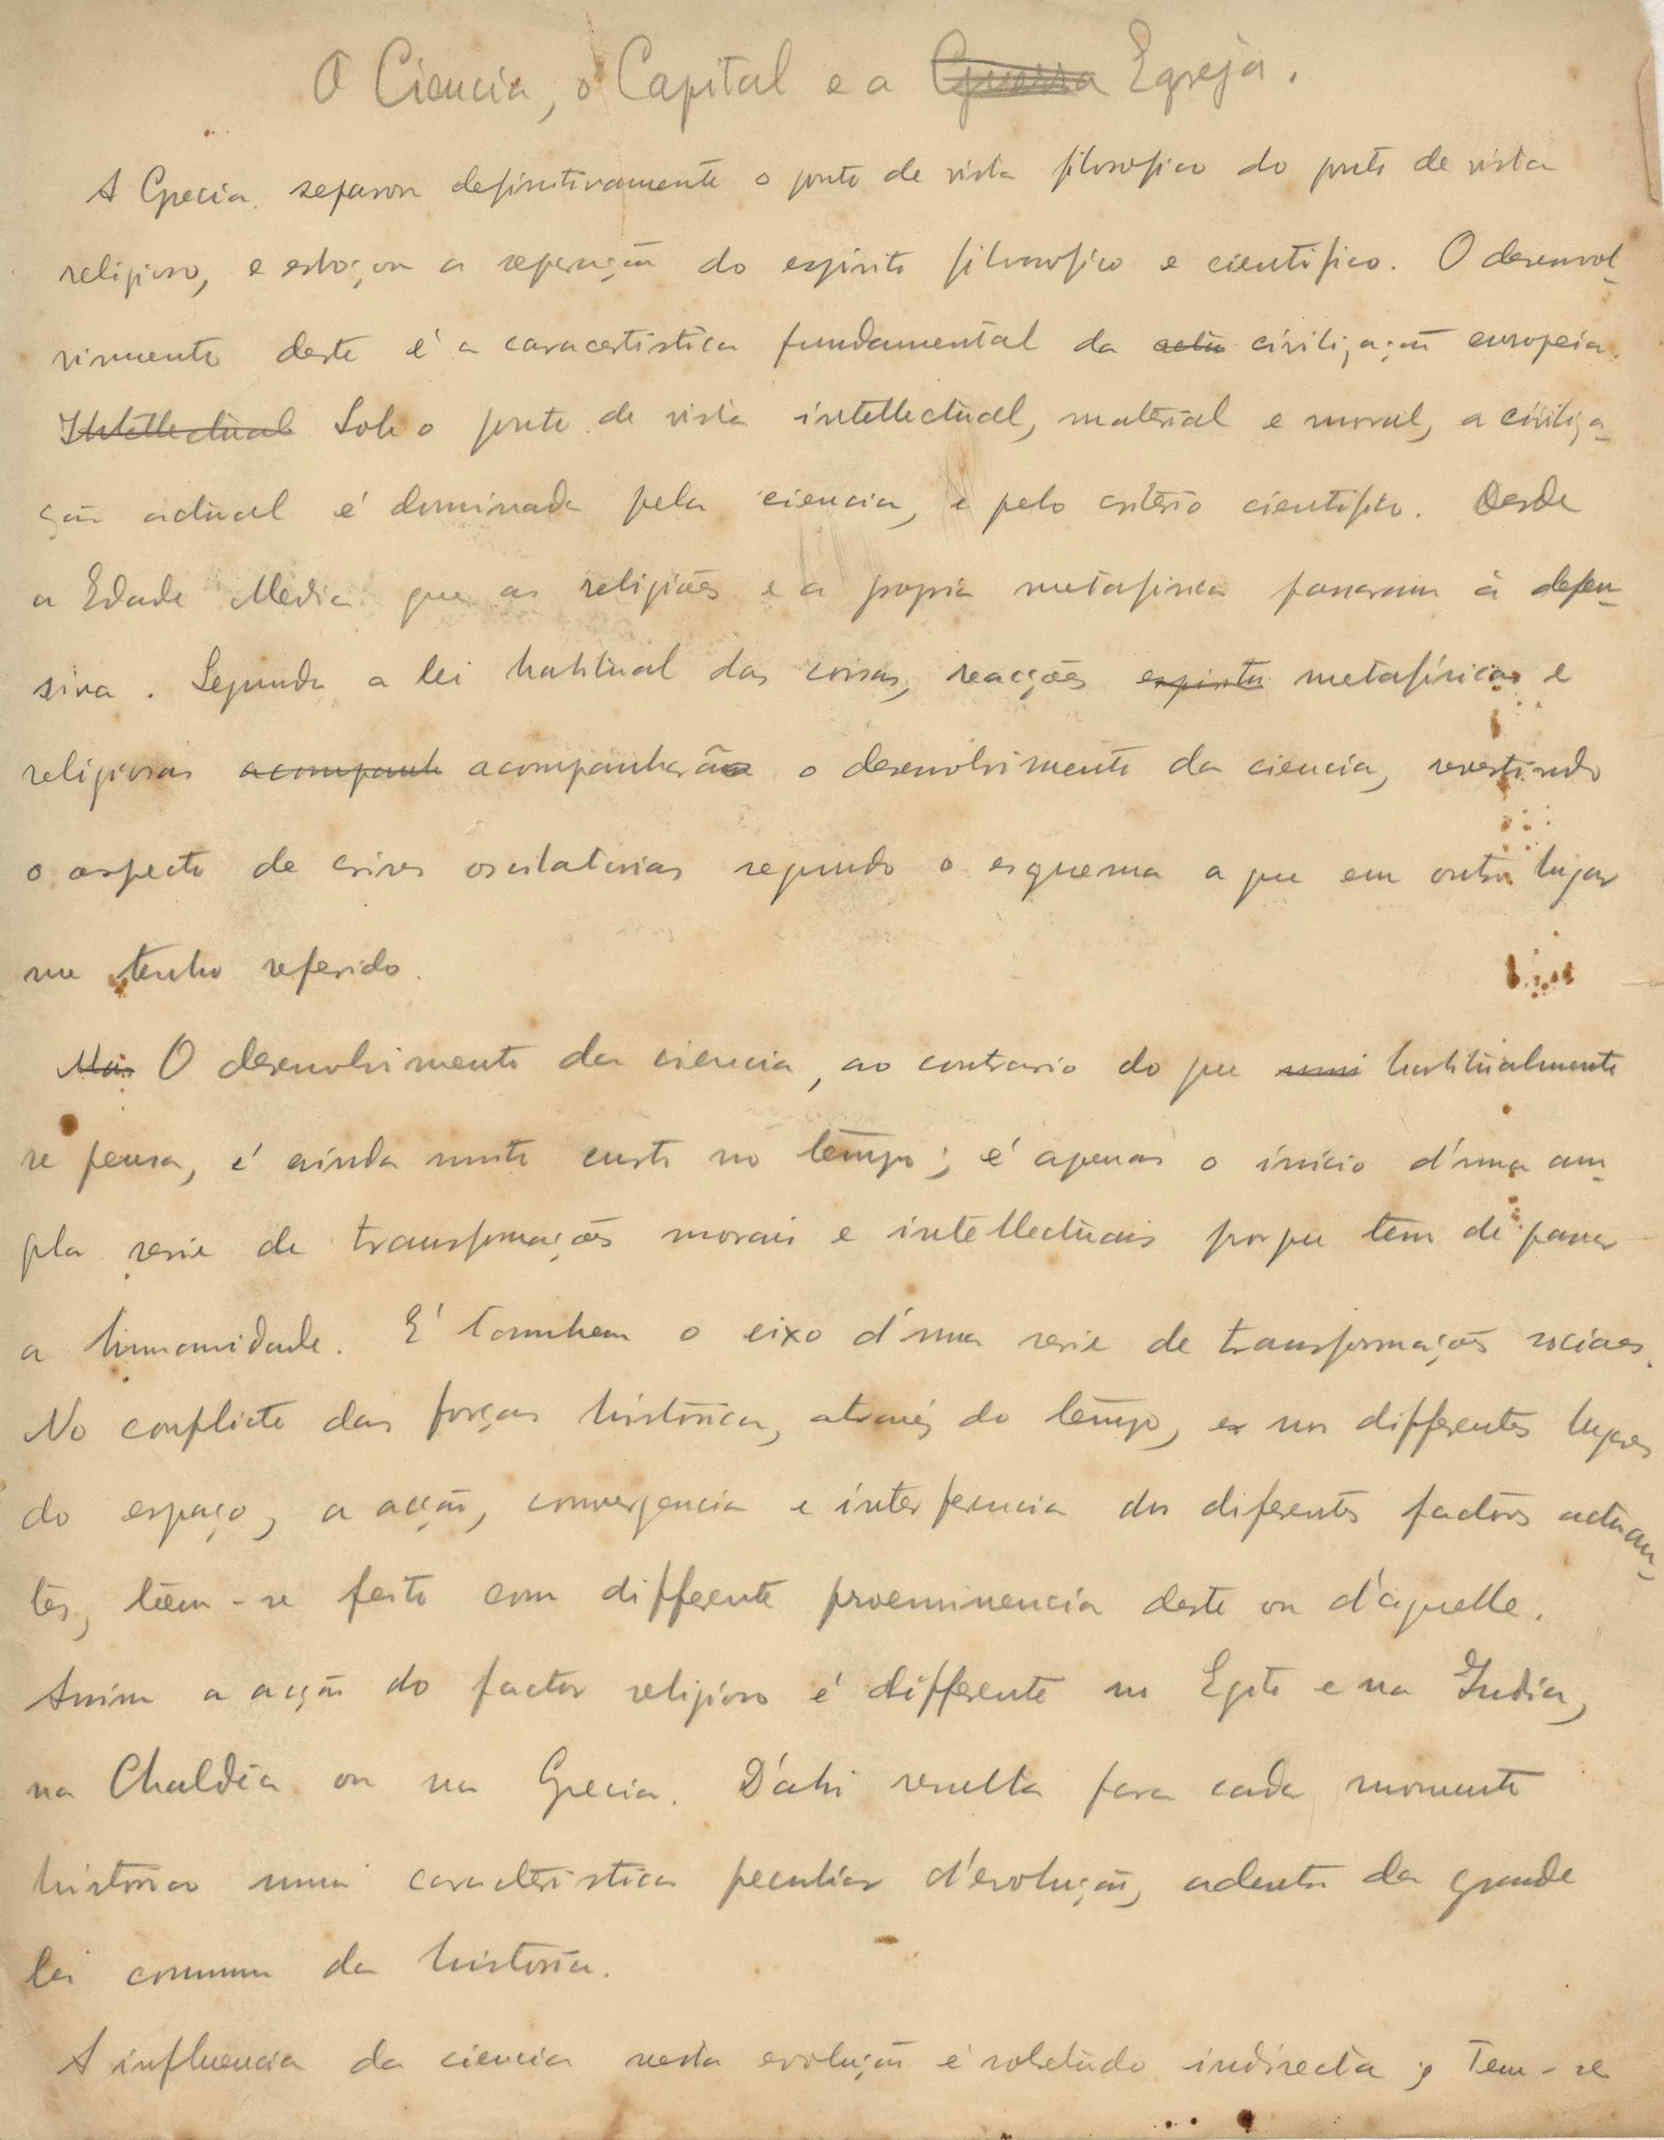 A Ciencia, o Capital e a Guerra Egreja.
A Grecia separou definitivamente o ponto de vista filosofico do ponto de vista
religioso, e esboçou a separação do espirito filosofico e cientifico. O desenvol-
vimento deste é a caracertistica fundamental da actu civilização europeia.
Intellectual Sob o ponto de vista intellectual, material e moral, a civiliza-
ção actual é dominada pela ciencia, e pelo criterio cientifico. Desde
a Edade Media que as religiões e a propria metafisica passaram á defen-
siva. Segundo a lei habitual das coisas, reacções espirito metafisicas e
religiosas acompanh acompanharão o desenvolvimento da ciencia, revestindo
o aspecto de crises oscilatorias segundo o esquema a que em outro lugar
me tenho referido.
Mas O desenvolvimento da ciencia, ao contrario do que mui habitualmente
se pensa, é ainda muito curto no tempo; é apenas o inicio d'uma am-
pla serie de transformações morais e intellectuais porque tem de passar
a humanidade. E' tambem o eixo d'uma serie de transformações sociaes.
No conflicto das forças historicas, através do tempo, e nos differentes lugares
do espaço, a acção, convergencia e interferencia dos diferentes factores actuan-
tes, tèem-se feito com differente proeminencia deste ou d'aquelle.
Assim a acção do factor religioso é differente no Egito e na India,
na Chaldêa ou na Grecia. D'ahi resulta para cada momento
historico uma caracteristica peculiar d'evolução, adentro da grande
lei commum da historia.
A influencia da ciencia nesta evolução é sobretudo indirecta; Tem-se